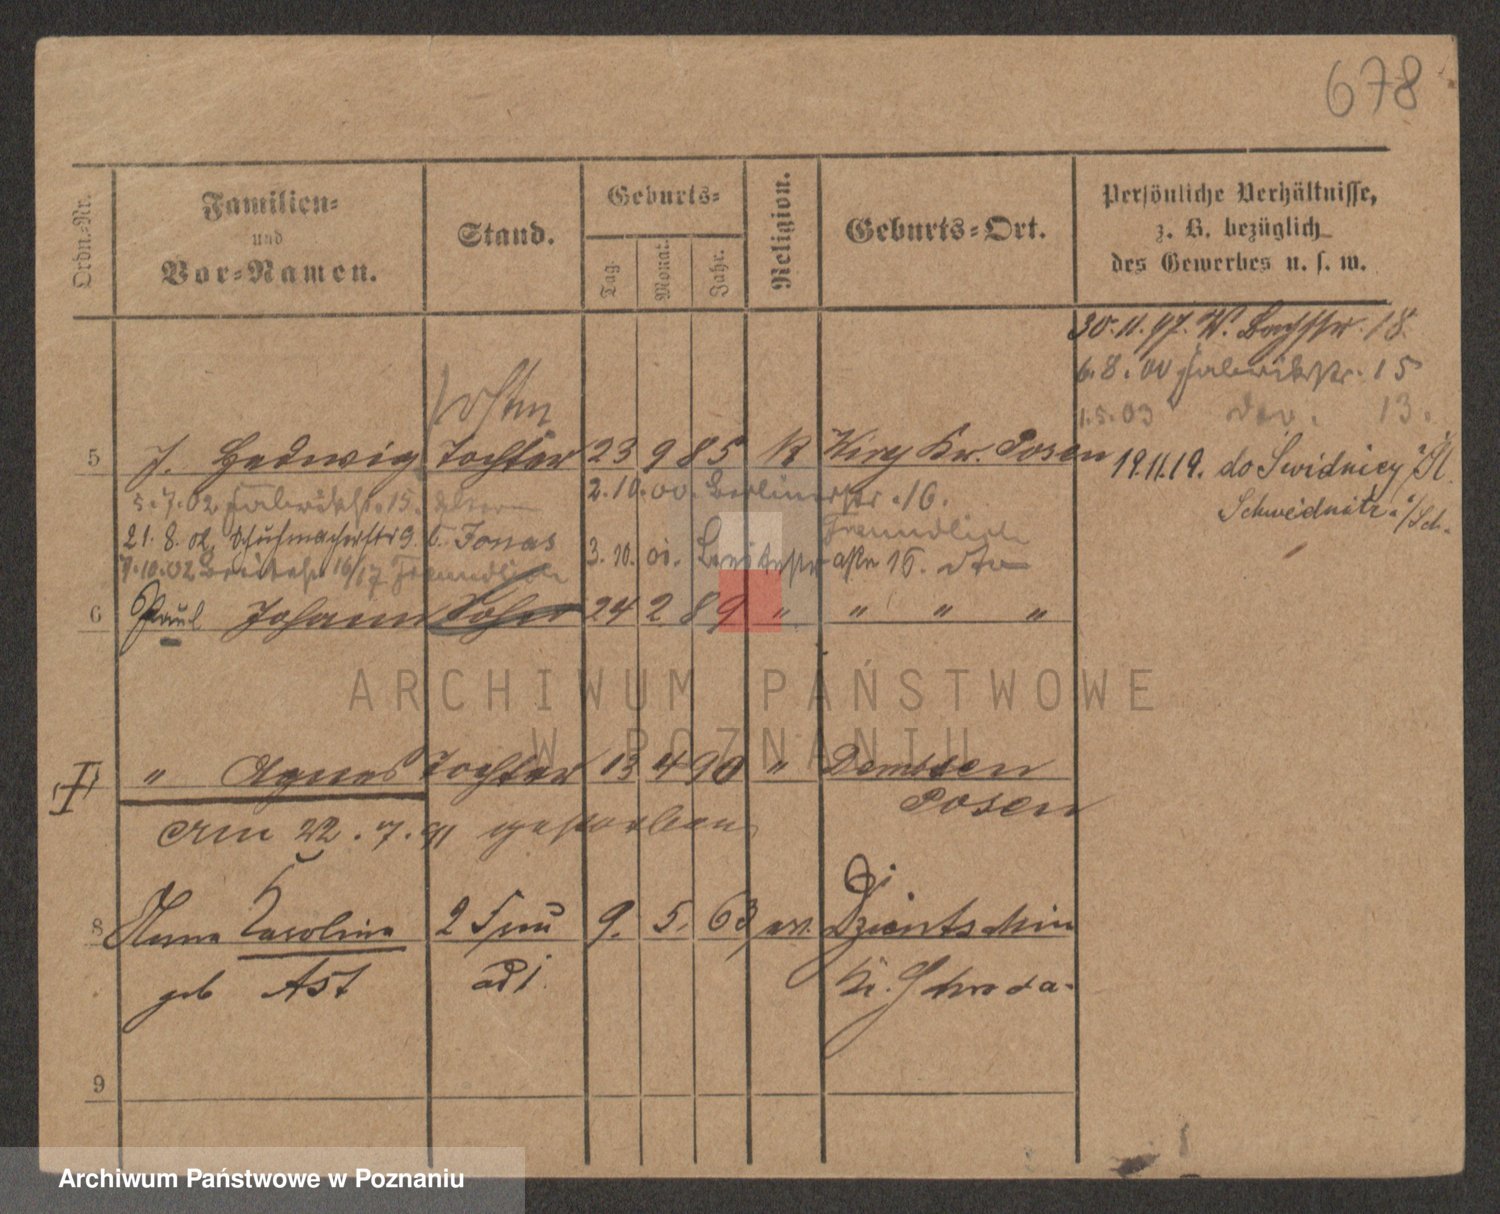 678
Ordn.-Nr.
Familien-
und
Vor-Namen.
Stand.
Geburts-
Tag.
Monat.
Jahr.
Religion.
Geburts-Ort.
Persönliche Verhältnisse,
z. B. bezüglich
des Gewerbes u. s. w.
30.11.97. W. Bachstr. 18.
6.8.00 Fabrikstr. 15
1.5.03 dto. 13.
5 Hedwig Tochter 23 9 85 K Kr. Posen
19.11.19. do Swidnicy
Schweidnitz
5.7.02 Fabrikstr. 15. Eltern
2.10.00. Berlinerstr. 16.
21.8.02 Schuhmacherstr 9. b. Jonas
Freundlich
3.10.01. Breitestr 15. dto
7.10.02 Breitestr 16/17 Freundlich
6 Paul Johann Sohn 24 2 89 " " " "
ARCHIWUM PAŃSTWOWE
W POZNANIU
" Agnes Tochter 13 4 90 " Dembsen
Posen
Am 22.7.91 gestorben
8 Anna Karolina 2 Frau 9. 5. 63 ev.
geb Ast
Kr. Schroda
9
Archiwum Państwowe w Poznaniu